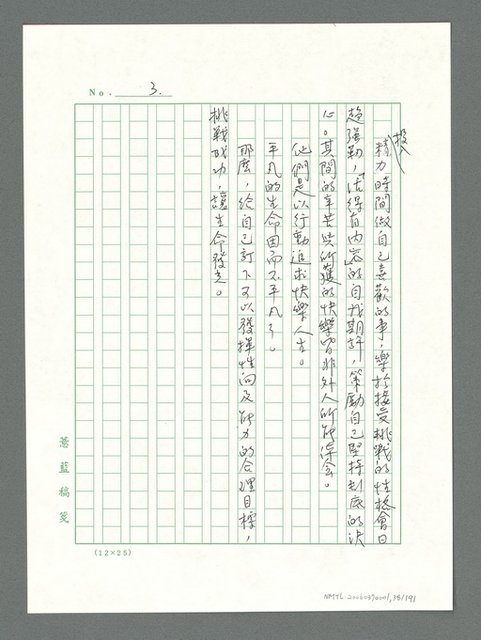 No. 3.
投入
精力時間做自己喜歡的事,樂於接受挑戰的性格會日
趨強勁,「活得有內容」的自我期許,策勵自己堅持到底的決
心。其間的辛苦與所獲的快樂皆非外人所能体會。
他們是以行動追求快樂人生。
平凡的生命因而不平凡了。
那麼,給自己訂下可以發揮性向及能力的合理目標,
挑戰成功,讓生命發光。
蒼藍稿箋
(12×25)
NMTL 20060370001,38/191